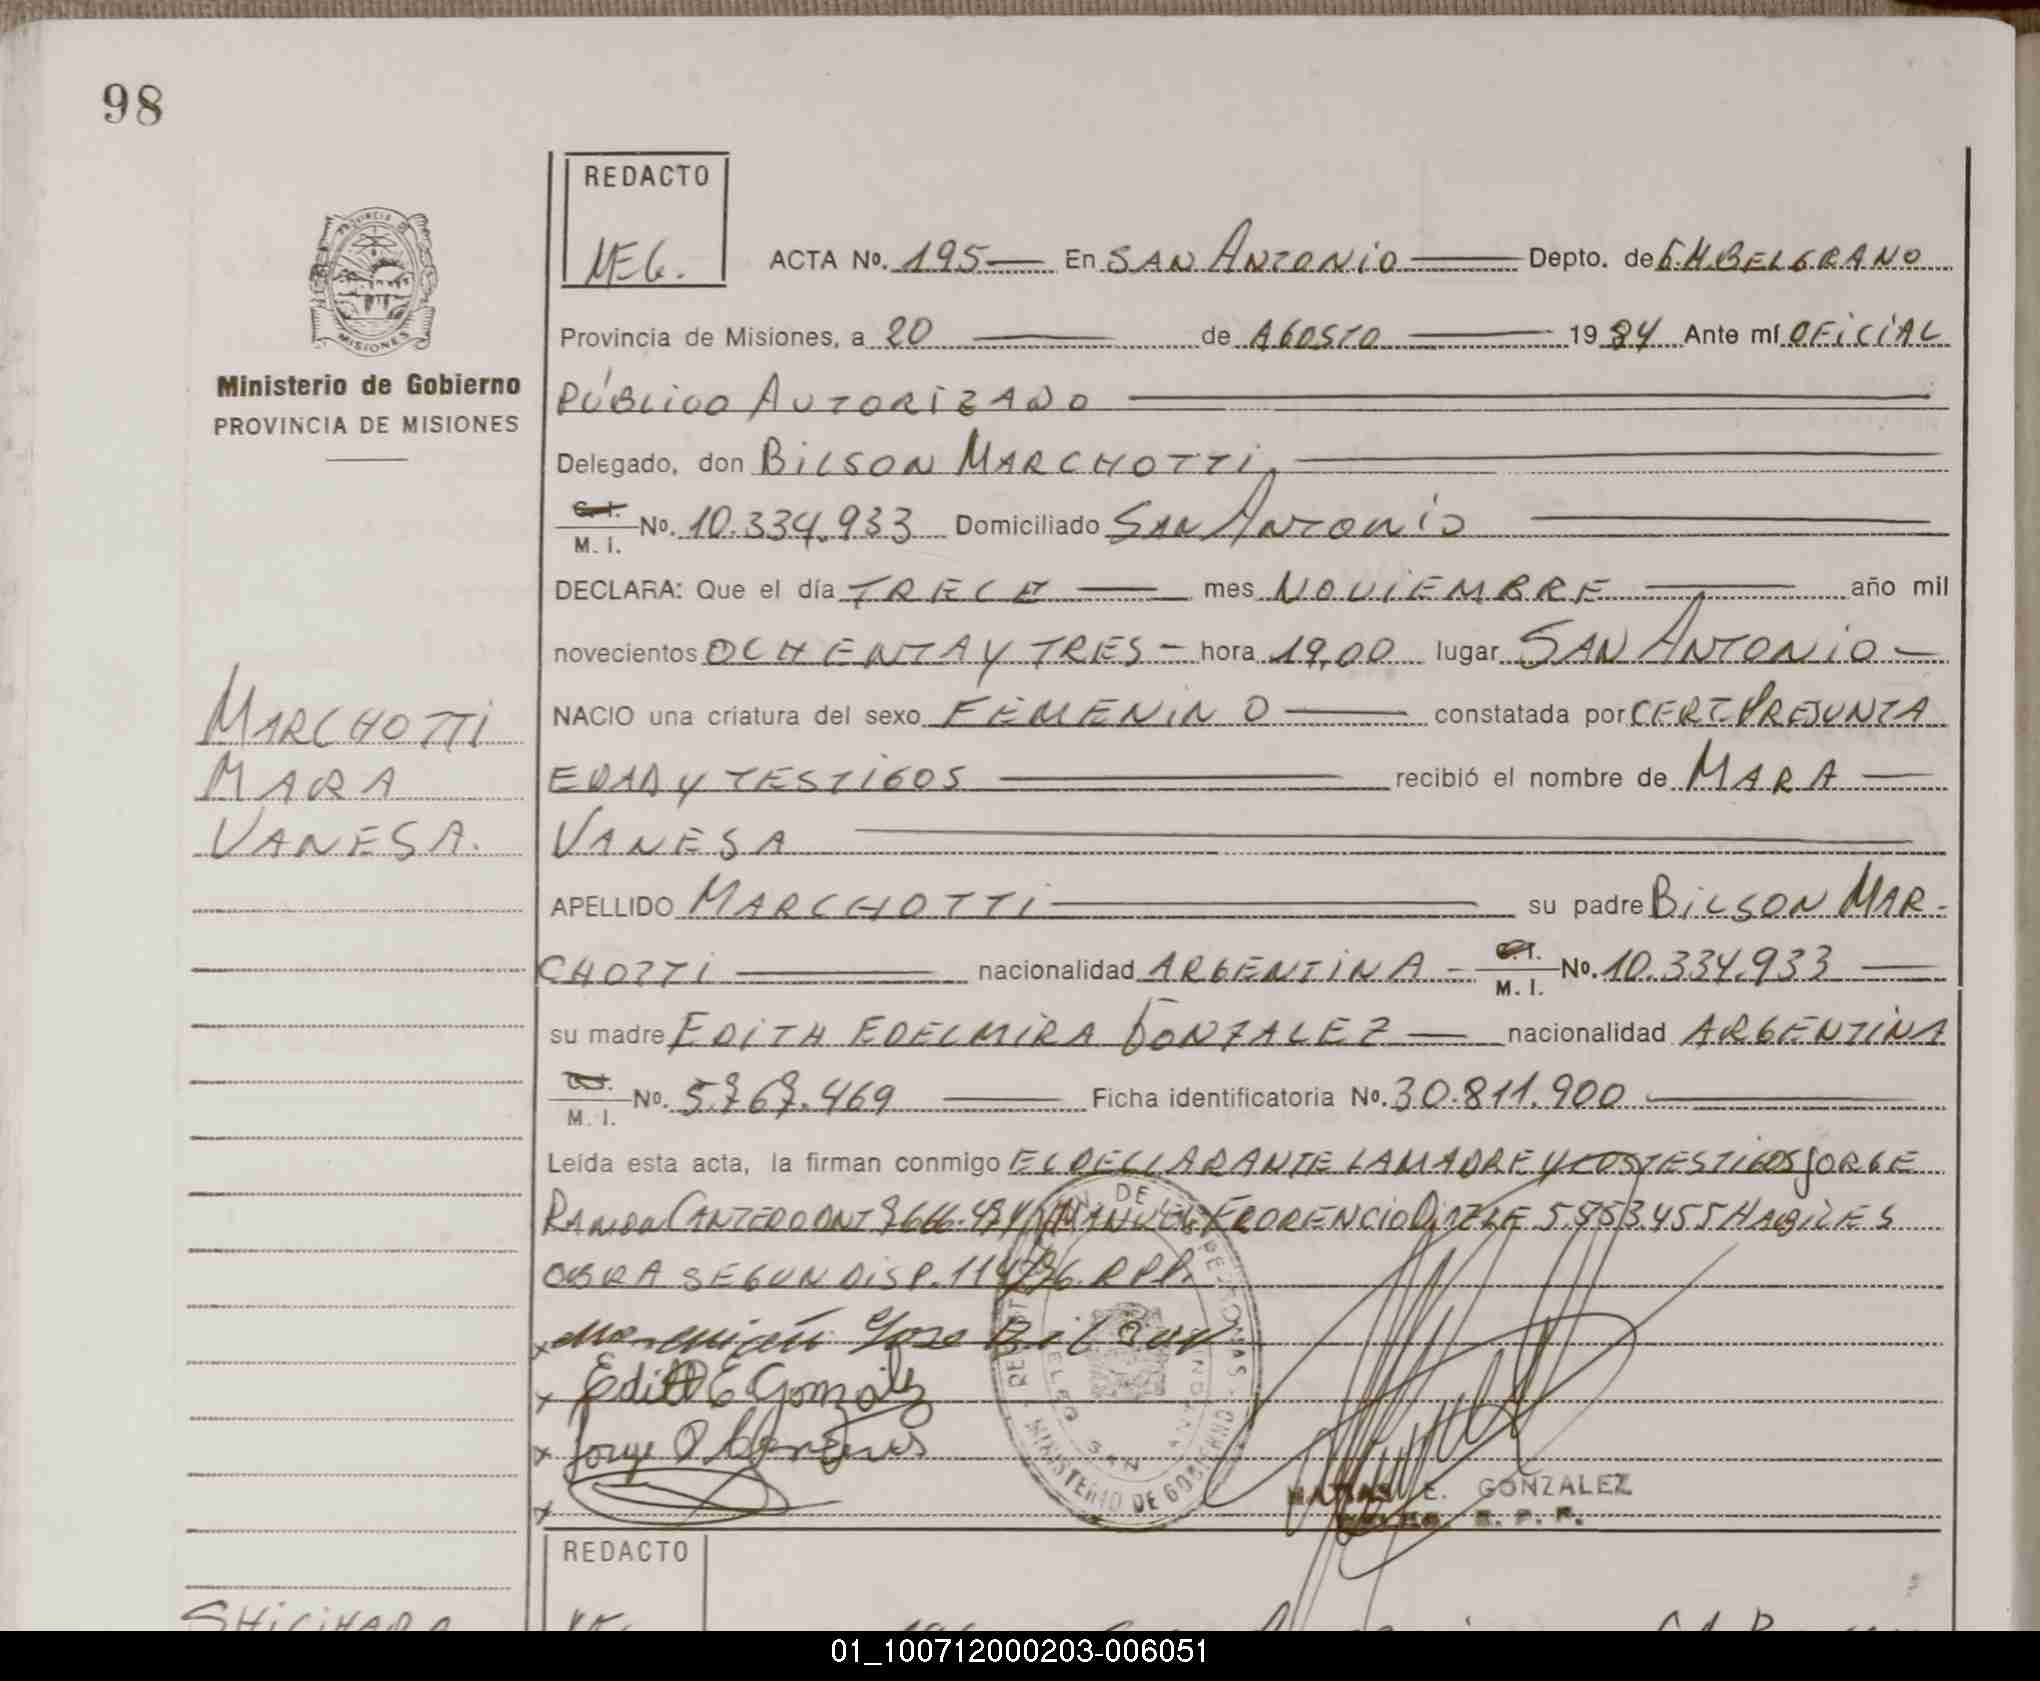 98
REDACTO
M.E.G.
ACTA No. 195 En SAN ANTONIO Depto. de G.M.BELGRANO
Provincia de Misiones, a 20 de AGOSTO 1984 Ante mí OFICIAL
PÚBLICO AUTORIZADO
Ministerio de Gobierno
PROVINCIA DE MISIONES
Delegado, don BILSON MARCHOTTI,
C. I. M. I. No. 10.334.933 Domiciliado SAN ANTONIO
DECLARA: Que el día TRECE mes NOVIEMBRE año mil
novecientos OCHENTA Y TRES - hora 19,00 lugar SAN ANTONIO -
MARCHOTTI
MARA
VANESA.
NACIO una criatura del sexo FEMENINO constatada por CERT.PRESUNTA
EDAD Y TESTIGOS recibió el nombre de MARA
VANESA
APELLIDO MARCHOTTI su padre BILSON MAR-
CHOTTI nacionalidad ARGENTINA - C.I. M. I. No. 10.334.933
su madre EDITH EDELMIRA GONZALEZ nacionalidad ARGENTINA
M. I. No. 5.767.469 Ficha identificatoria No. 30.811.900
Leída esta acta, la firman conmigo EL DECLARANTE LA MADRE Y LOS TESTIGOS JORGE
RAMON CANTERO DNI MANUEL FLORENCIO HABILES
OBRA SEGUN DISP. R.P.P.
x Bilson
x Edith E Gonzalez
x Jorge
x
MINISTERIO DE GOBIERNO
SAN
E. GONZALEZ
R. P. P.
REDACTO
01_100712000203-006051